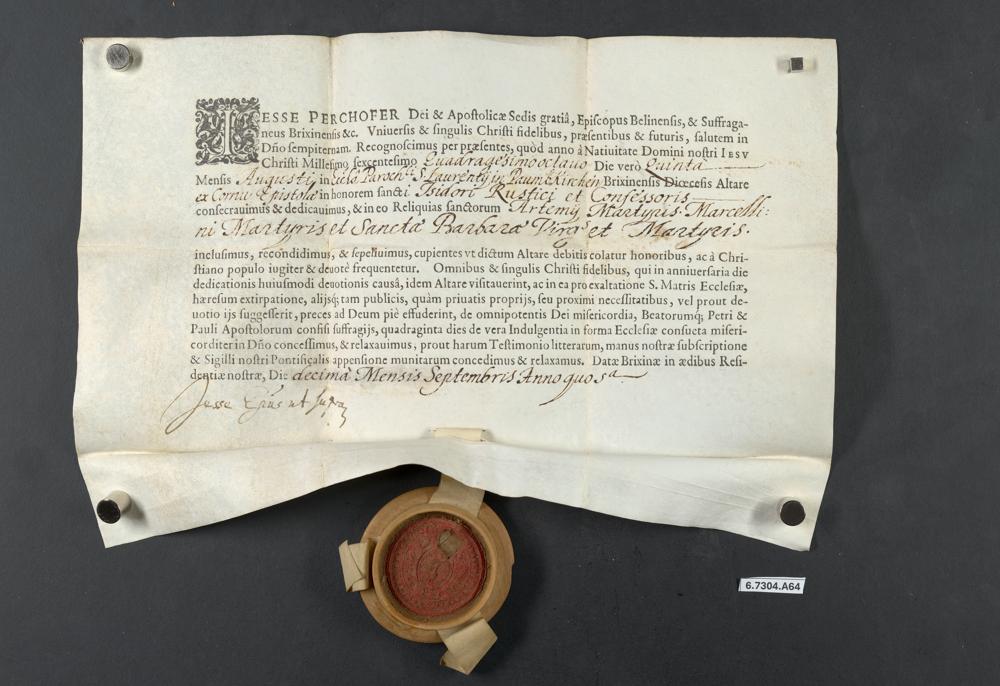 IESSE PERCHOFER Dei & Apostolicæ Sedis gratiâ, Episcopus Belinensis, & Suffraga-
neus Brixinensis &c. Vniuersis & singulis Christi fidelibus, præsentibus & futuris, salutem in
Dño sempiternam. Recognoscimus per præsentes, quòd anno à Natiuitate Domini nostri IESV
Christi Millesimo sexcentesimo Quadragesimo octauo Die verò Quinta
Mensis Augusti in Parochli S Laurentij in Paumkirchen Brixinensis Diœcesis Altare
ex Cornu Epistolæ in honorem sancti Isidori Rustici et Confessoris
consecrauimus & dedicauimus, & in eo Reliquias sanctorum Artemij Martyris. Marcelli:
ni Martyris et Sanctæ Barbaræ Virg: et Martyris.
inclusimus, recondidimus, & sepeliuimus, cupientes vt dictum Altare debitis colatur honoribus, ac à Chri-
stiano populo iugiter & deuotè frequentetur. Omnibus & singulis Christi fidelibus, qui in anniuersaria die
dedicationis huiusmodi deuotionis causâ, idem Altare visitauerint, ac in ea pro exaltatione S. Matris Ecclesiæ,
hæresum extirpatione, alijsq; tam publicis, quàm priuatis proprijs, seu proximi necessitatibus, vel prout de-
uotio ijs suggesserit, preces ad Deum piè effuderint, de omnipotentis Dei misericordia, Beatorumq; Petri &
Pauli Apostolorum confisi suffragijs, quadraginta dies de vera Indulgentia in forma Ecclesiæ consueta miseri-
corditer in Dño concessimus, & relaxauimus, prout harum Testimonio litterarum, manus nostræ subscriptione
& Sigilli nostri Pontificalis appensione munitarum concedimus & relaxamus. Datæ Brixinæ in ædibus Resi-
dentiæ nostræ, Die decima Mensis Septembris Anno quo sa.
Jesse Epus ut supra
6.7304.A64